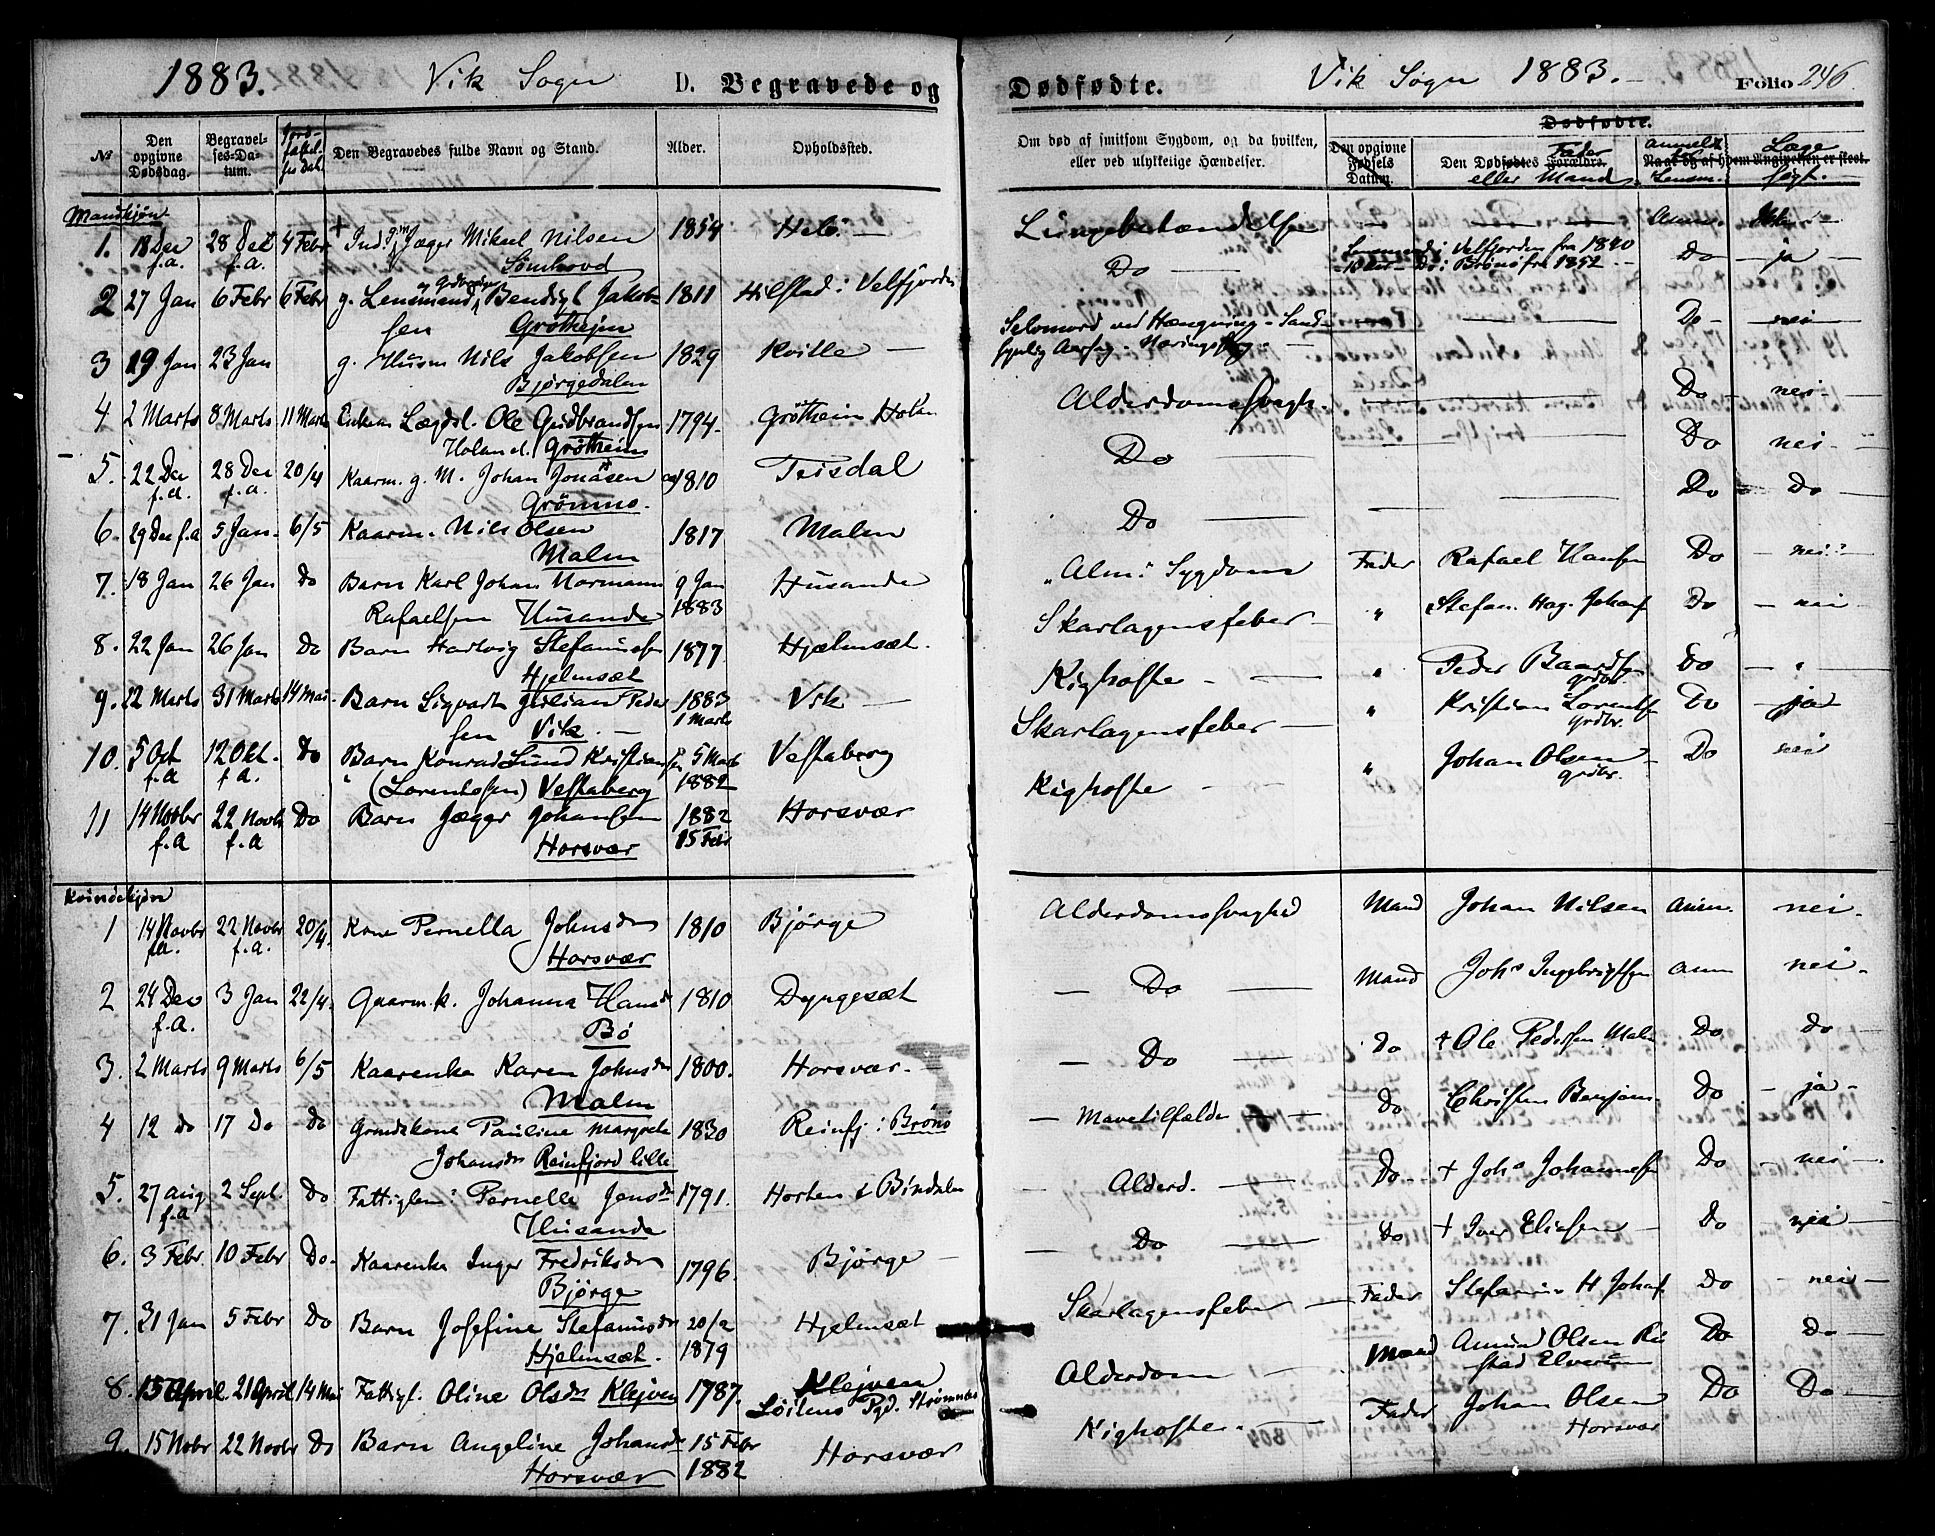 1883. Vik Sogn D. Begravede og Dødfødte. Vik Sogn 1883. Folio 246
№ Den opgivne Dødsdag. Begravelses-Datum. Den Begravedes fulde Navn og Stand. Alder. Opholdssted.
Om død af smitsom Sygdom, og da hvilken, eller ved ulykkelige Hændelser. Den opgivne Fødsels Datum. Dødfødte. Den Dødfødtes Forældre. Fader eller Mand. anmeldt Lensm. Læge søgt.
Mandkjøn
1. 18 Dec f.a. 28 Dec f.a. 4 Febr + Jæger Mikael Nilsen 1854 — — — Anm.
Sømhovd
Lensmand i Velfjorden fra 1840
Do i Brønø fra 1852
2 27 Jan 6 Febr 6 Febr g. Lensmand Bendigt Jakob- 1811 Hilstad i Velfjorden Do — Do — ja
sen Grøtheim
3 19 Jan 23 Jan g. Husm Nils Jakobsen 1829 Kville — Selvmord ved Hængning - Sand- — Do — nei
Bjørgedalen
synlig Aarsag - Næringssorg
4 2 Marts 8 Marts 11 Marts Enkem Lægdsl. Ole Gudbrandsen 1794 Grøtheim Holm Alderdomssvagh. — Do nei
Holand. Grøtheim
5. 22 Dec f.a. 28 Dec f.a. 20/4 Kaarm. g. M. Johan Jonasen 1810 Teisdal Do — Do nei
Grønmo.
6. 29 Dec f.a 5 Jan. 6/5 Kaarm. Nils Olsen 1817 Malm Do — Do Do
Malm
7. 18 Jan 26 Jan Do Barn Karl Johan Normann 9 Jan 1883 Husande "Alm." Sygdom Fader Rafael Hansen Do nei
Rafaelsen Husande
8. 22 Jan 26 Jan Do Barn Hartvig Stefanusen 1877 Hjelmsæt. Skarlagensfeber " Stefan. Hag. Johans Do nei
Hjelmsæt
9. 22 Marts 31 Marts 14 Mai Barn Sigvart Julian Peder 1883 1 Marts Vik — Kighoste " Peder Baardsen Grdbr. Do — "
sen Vik. —
10. 5 Oct f.a 12 Okt. f.a. Do Barn Konrad Lund Kristiansen 5 Marts 1882 Vestaberg Skarlagensfeber " Kristian Lorents. Grdbr. Do ja
(Lorentssen) Vestaberg
11 14 Novbr f.a 22 Novbr f.a Do Barn Jæger Johansen 1882 15 Febr Horsvær Kighoste " Johan Olsen Grdbr. Do nei
Horsvær
Kvindekjøn
1 14 Novbr fa. 22 Novbr f.a. 20/4. Kone Pernella Johnsdr 1810 Bjørge Alderdomssvaghed Mand Johan Nilsen Anm. nei.
Horsvær
2 24 Dec f.a. 3 Jan 22/4. Gaarm.k. Johanna Hansdr 1810 Dyngesæt — Do — Mand Johs Ingebrigtsen Anm nei
Bø
3. 2 Marts 9 Marts 6/5 Kaarenke Karen Johnsdr 1800. Horsvær. — Do — Do + Ole Pedersen Malm Do Do
Malm
4 12 Do 17 Do Do Grundskone Pauline Margrete 1830 Reinfj i Brønø — Mavetilfælde — Do Christen Benjam. Do ja
Johansdr Reinfjord lille
5. 27 Aug f.a 2 Sept. Do Fattiglem: Pernelle Jensdr 1791. Horten i Bindalen — Alderd. — Do + Johs Johannesen Do nei
Husande
6. 3 Febr. 10 Febr Do. Kaarenke Inger Fredriksdr 1796. Bjørge — Do — Do + Iver Eliesen Do nei
Bjørge
7. 31 Jan 5 Febr Do Barn Josefine Stefanusdr 20/2 1879 Hjelmsæt Skarlagensfeber Fader Stefanus H Johans. Do nei
Hjelmsæt.
8. 15 April 21 April 14 Mai Fattigl. Oline Olsdr Klejven 1787. Klejven Løitens Pgd. Strømnes Alderdom Mand Amund Olsen Ru Do Do
stad Elverum
9. 15 Nobr 22 Novbr Do Barn Angeline Johansdr 15 Febr 1882 Horsvær Kighoste. — Fader Johan Olsen Do Do
Horsvær Horsvær